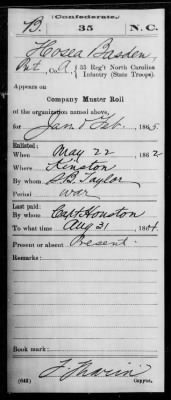 (Confederate.)
B. 35 N.C.
Hosea Basden
Pvt, Co. A, 35 Reg't North Carolina
Infantry (State Troops).
Appears on
Company Muster Roll
of the organization named above,
for Jan & Feb, 1865.
Enlisted:
When May 22, 1862
Where Kinston
By whom S. B. Taylor
Period war
Last paid:
By whom Capt Houston
To what time Aug 31, 1864.
Present or absent Present
Remarks:
Book mark:
(642) Copyist.